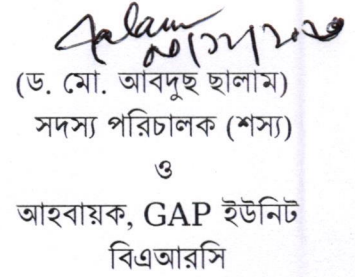 (ড. মো. আবদুছ ছালাম)
সদস্য পরিচালক (শস্য)
ও
আহবায়ক, GAP ইউনিট
বিএআরসি